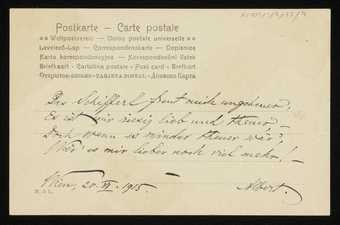 Postkarte — Carte postale
Weltpostverein — Union postale universelle
Levelező-Lap — Correspondenzkarte — Dopisnice
Karta korespondencyjna — Korespondenční lístek
Briefkaart - Cartolina postale - Post card - Brefkort
Das Schifferl freut mich ungeheuer,
Es ist mir riesig lieb und theuer —
Doch wenn es minder theuer wär',
Wär' es mir lieber noch viel mehr! —
Wien, 20. VI. 1915.
Albert.